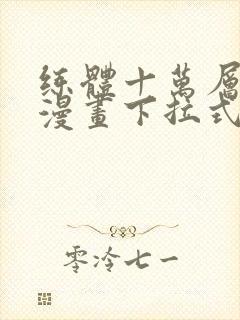 練體十萬層
漫畫下拉式
零冷七一